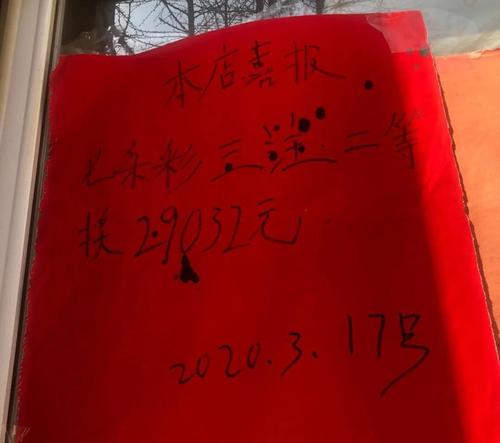 本店喜报
七乐彩三注二等
奖29032元
2020.3.17号